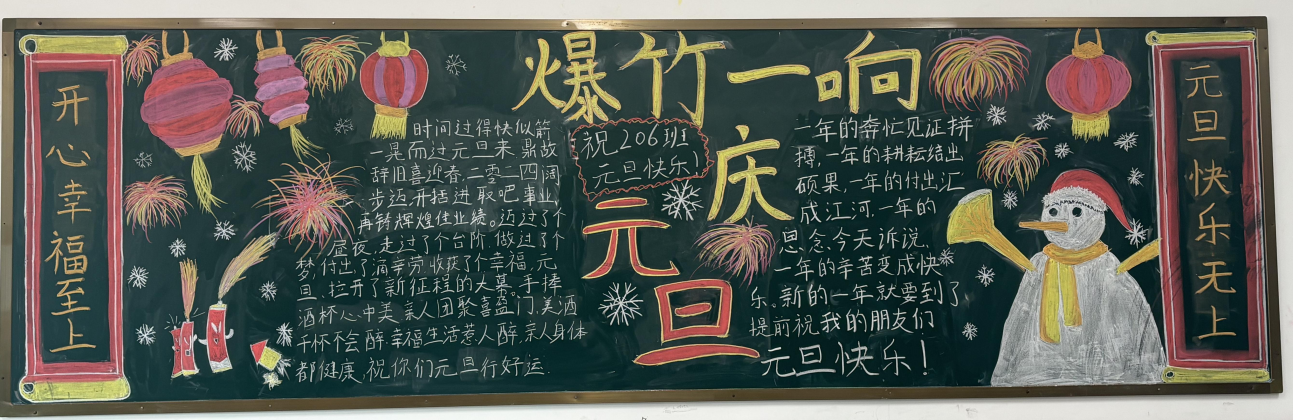 开心幸福至上
爆竹一响
庆
元旦
祝206班
元旦快乐!
时间过得快似箭
一晃而过元旦来,鼎故
辞旧喜迎春,二零二四阔
步迈,开括进取吧事业,
再铸辉煌佳业绩。迈过了个
昼夜,走过了个台阶,做过了个
梦,付出了滴辛劳,收获了个幸福,元
旦,拉开了新征程的大幕。手捧
酒杯心中美,亲人团聚喜盈门,美酒
千杯不会醉,幸福生活惹人醉,亲人身体
都健康,祝你们元旦行好运.
一年的奔忙见证拼
搏,一年的耕耘结出
硕果,一年的付出汇
成江河,一年的
思念今天诉说,
一年的辛苦变成快
乐。新的一年就要到了,
提前祝我的朋友们
元旦快乐!
元旦快乐无上